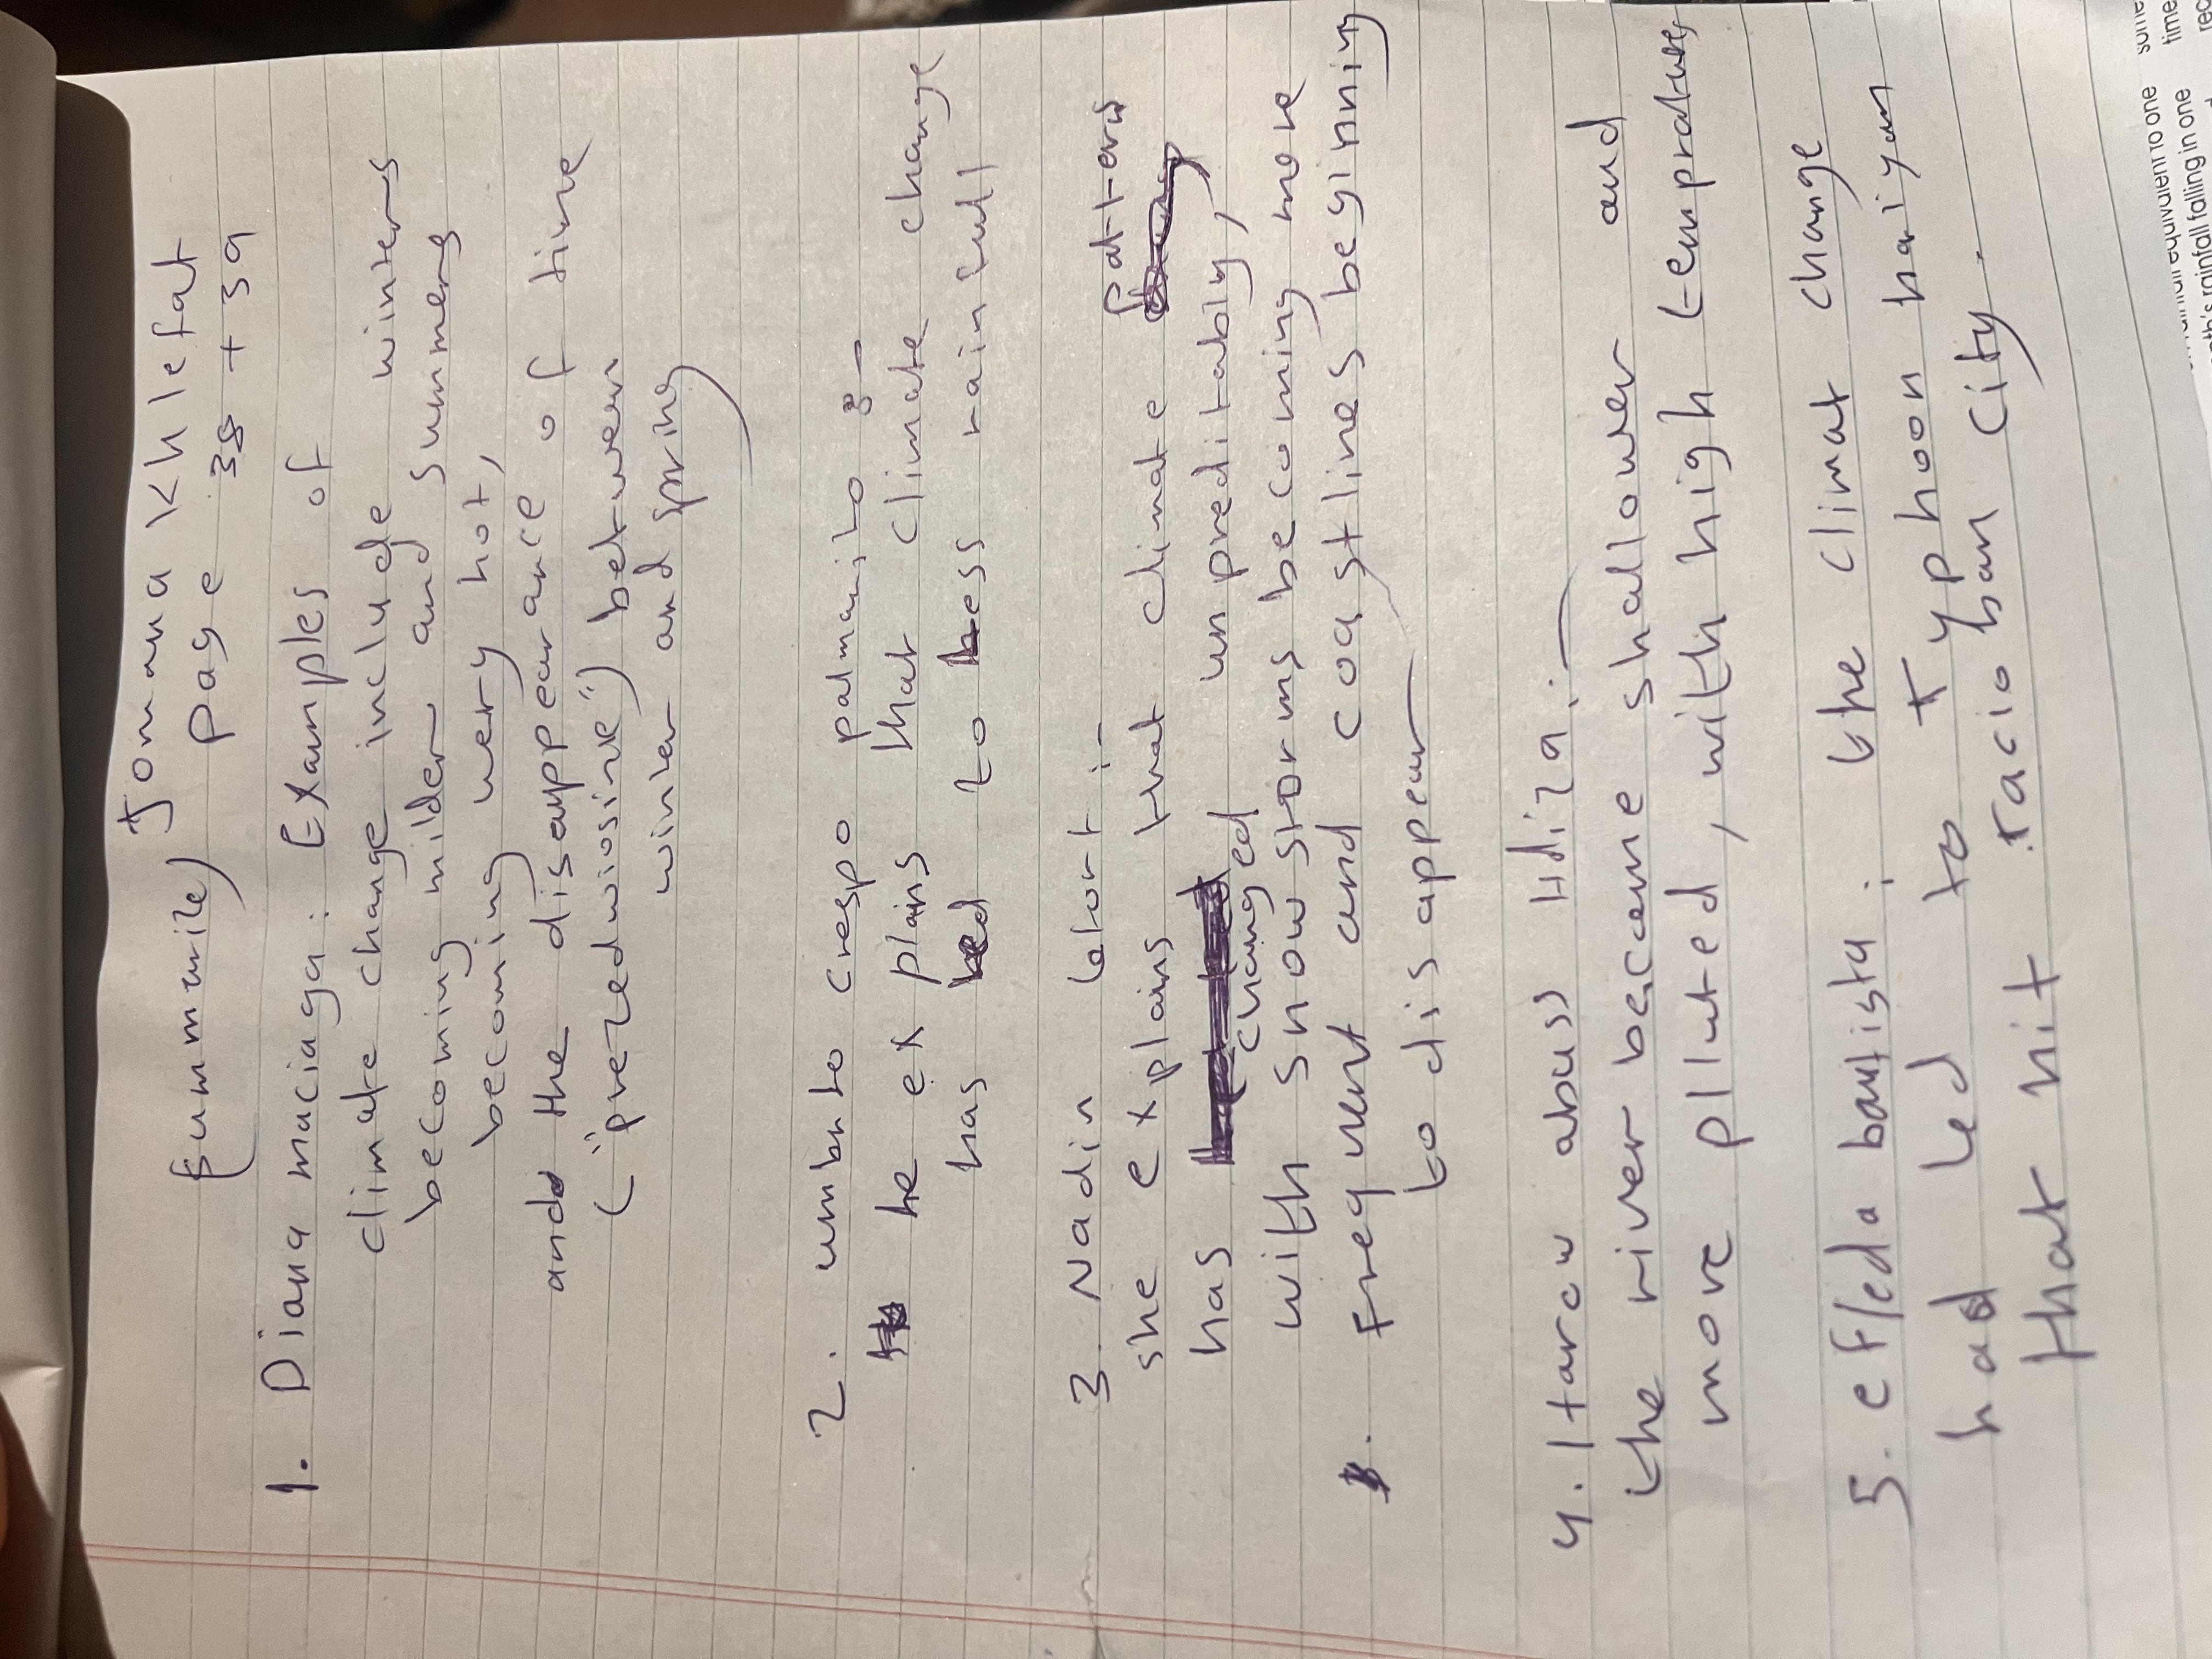 Jomana Khlefat
Summarile) page 38 + 39
1. Diana maciaga: Examples of
climate change include winters
becoming milder and summers
becoming very hot,
and the disappearance of time
("przedwiosine") between
winter and spring
2. umbrto crespo palmarito :-
he explains that climate change
has led to less rainfall
3 Nadin lefort :-
she explains that climate Patterns
has changed unpreditably,
with snowstorms becoming more
frequent and coastlines beginning
to disappear
4. Itarcw abuss Hdiza :-
the river became shallower and
more plluted, with high tempratures
5. efleda bautista : the climat change
had led to typhoon haiyan
that hit tacio ban city.
equivalent to one
rainfall falling in one
some
time
rec